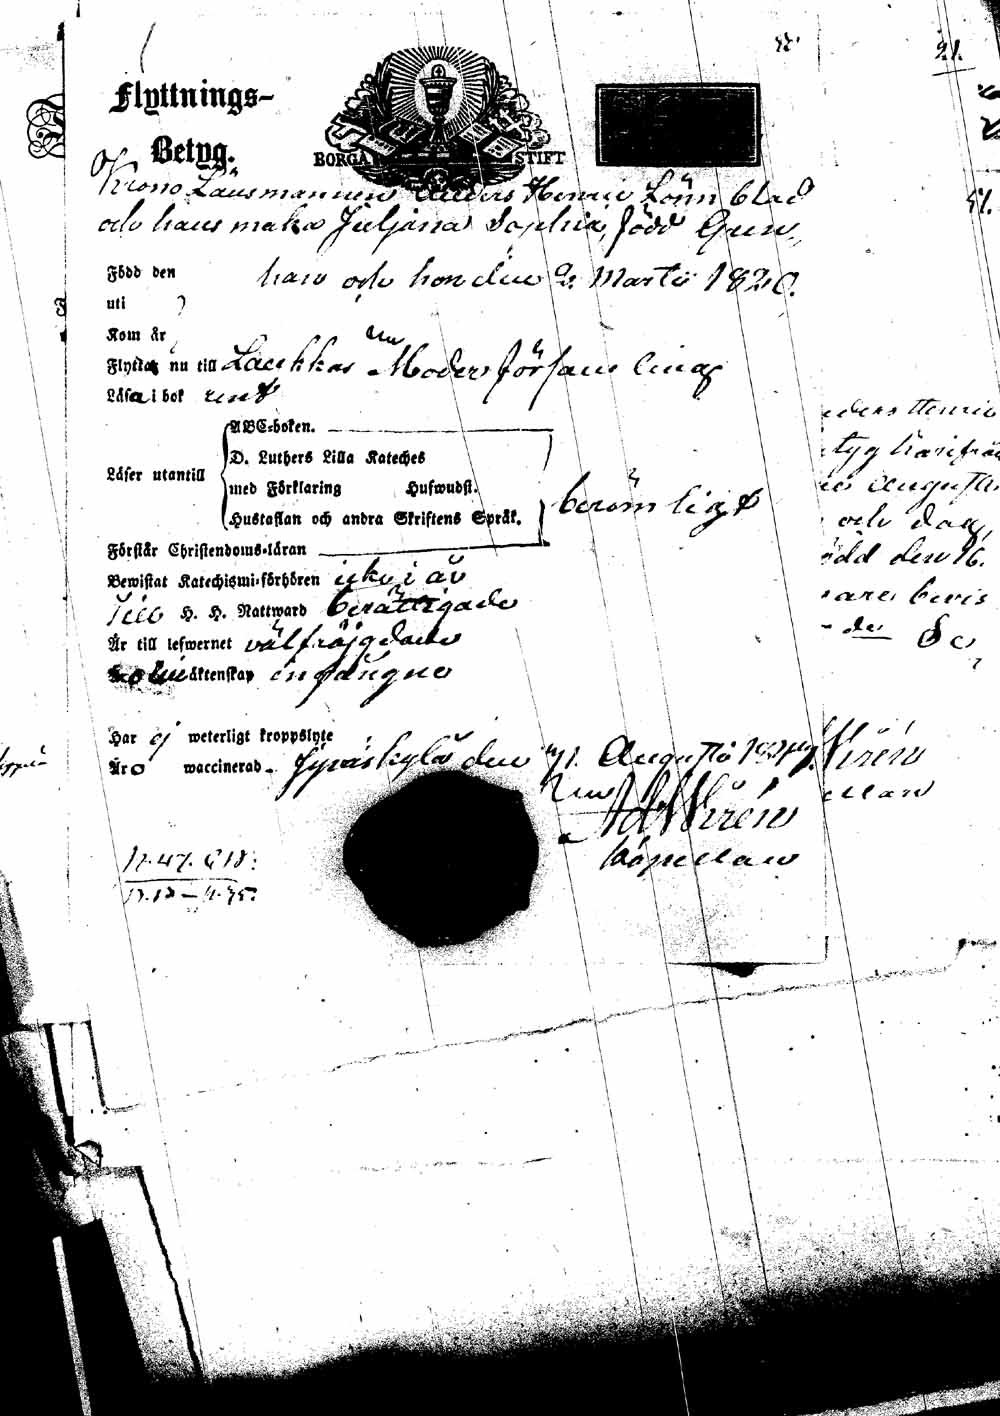 21.
Flyttnings-
Betyg.
BORGÅ STIFT
Krono Länsmannen Anders Henric Lönnblad
och hans maka Juljana Sophia, född Gun,
Född den han och hon den 2. Martii 1820.
uti
Kom år
Flyttat nu till Laukkas Moderförsamling
Läsa i bok rent
ABC-boken.
D. Luthers Lilla Kateches
Läser utantill
med Förklaring Hufwudst.
berömligt
Hustaflan och andra Skriftens Språk.
Förstår Christendoms-läran
Bewistat Katechismi-förhören icke i år
Till H. H. Nattward berättigade
Är till lefwernet välfräjdade
äktenskap ingångne
Har ej weterligt kroppslyte
Äro waccinerad. Jyväskylä den 21. Augusti
Ad Wirén
Kapellan
nders Henric
tyg härifrån
Augusti
och dag,
ödd den 16.
nare bevis
de
Wirén
ellan